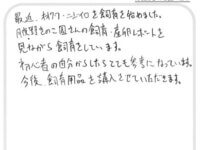 最近、オオクワ・ニジイロを飼育を始めました。
月夜野きのこ園さんの飼育・産卵レポートを
見ながら飼育をしています。
初心者の自分からしたらとても参考になっています。
今後、飼育用品を購入させていただきます。